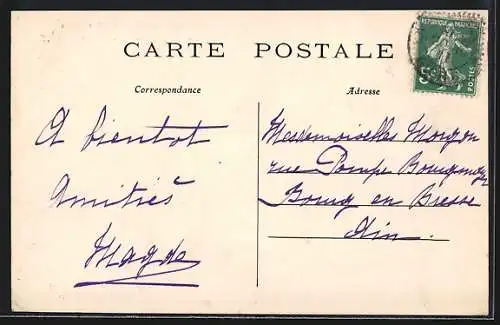 CARTE POSTALE
REPUBLIQUE FRANCAISE
5c
POSTES
Correspondance
A bientot
Amitiés
Magde
Adresse
Mesdemoiselles
rue Pompe
Bourg en Bresse
Ain.